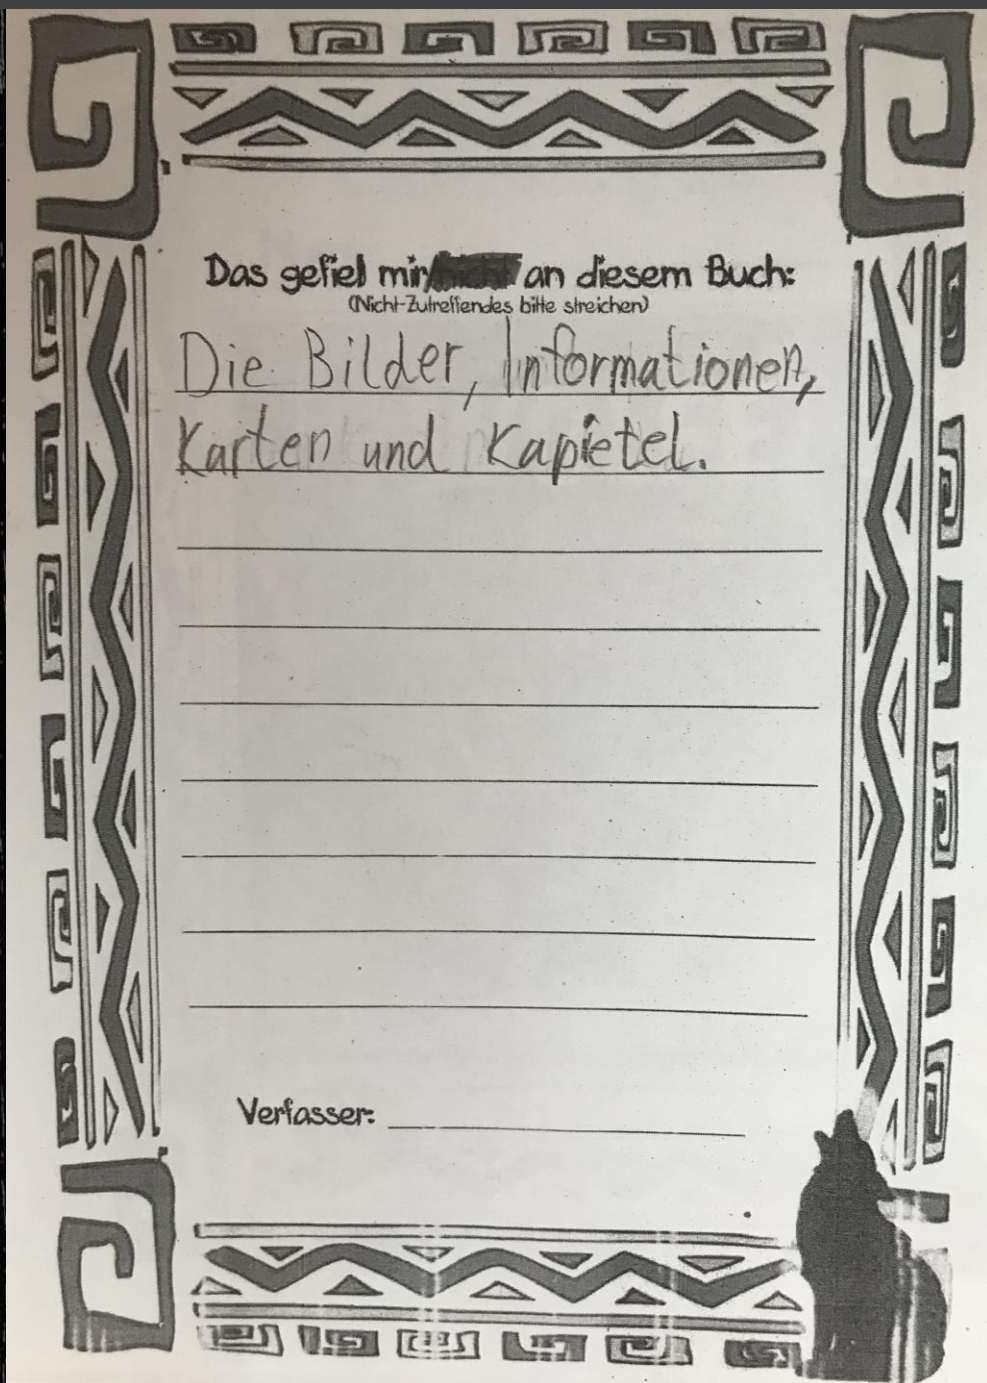 Das gefiel mir/nicht an diesem Buch:
(Nicht-Zutreffendes bitte streichen)
Die Bilder, Informationen,
Karten und Kapietel.
Verfasser: